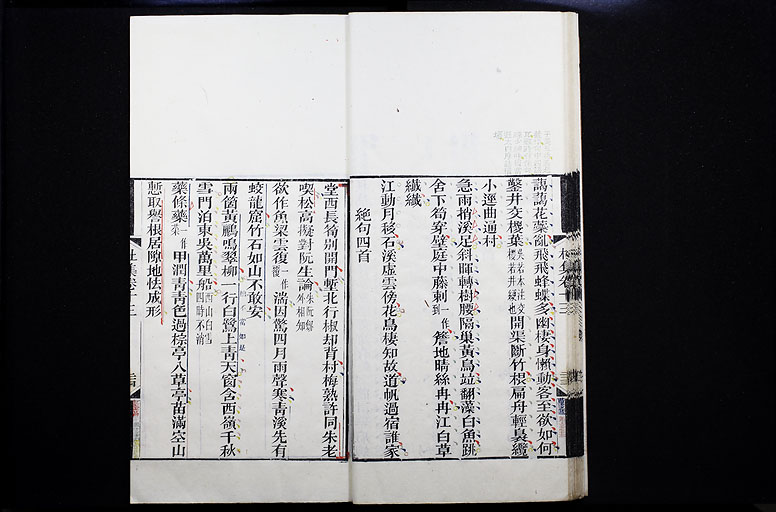 藹藹花蘂亂飛飛蜂蝶多幽棲身懶動客至欲如何
鑿井交椶葉吳若本注交椶若井綆也開渠斷竹根扁舟輕裊纜
小逕曲通村
急雨捎溪足斜暉轉樹腰隔巢黃鳥竝翻藻白魚跳
舍下筍穿壁庭中藤刺一作到簷地晴絲冉冉江白草
纖纖
江動月移石溪虛雲傍花鳥棲知故道帆過宿誰家
絕句四首
堂西長筍別開門塹北行椒却背村梅熟許同朱老
喫松高擬對阮生論朱阮劒外相知
欲作魚梁雲復一作覆湍因驚四月雨聲寒青溪先有
蛟龍窟竹石如山不敢安
兩箇黃鸝鳴翠柳一行白鷺上青天窗含西嶺千秋
雪門泊東吳萬里船西山白雪四時不消
藥條藥一作菜甲潤青青色過椶亭入草亭苗滿空山
慙取譽根居隙地怯成形
杜集卷十三